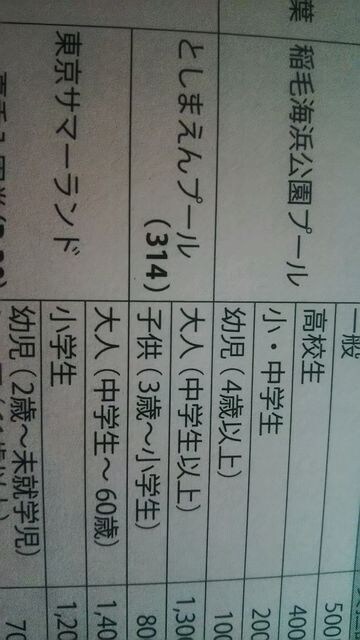 一般 500
葉 稲毛海浜公園プール 高校生 400
小・中学生 200
幼児（4歳以上） 100
としまえんプール 大人（中学生以上） 1,300
（314） 子供（3歳～小学生） 80
東京サマーランド 大人（中学生～60歳） 1,40
小学生 1,20
幼児（2歳～未就学児） 70